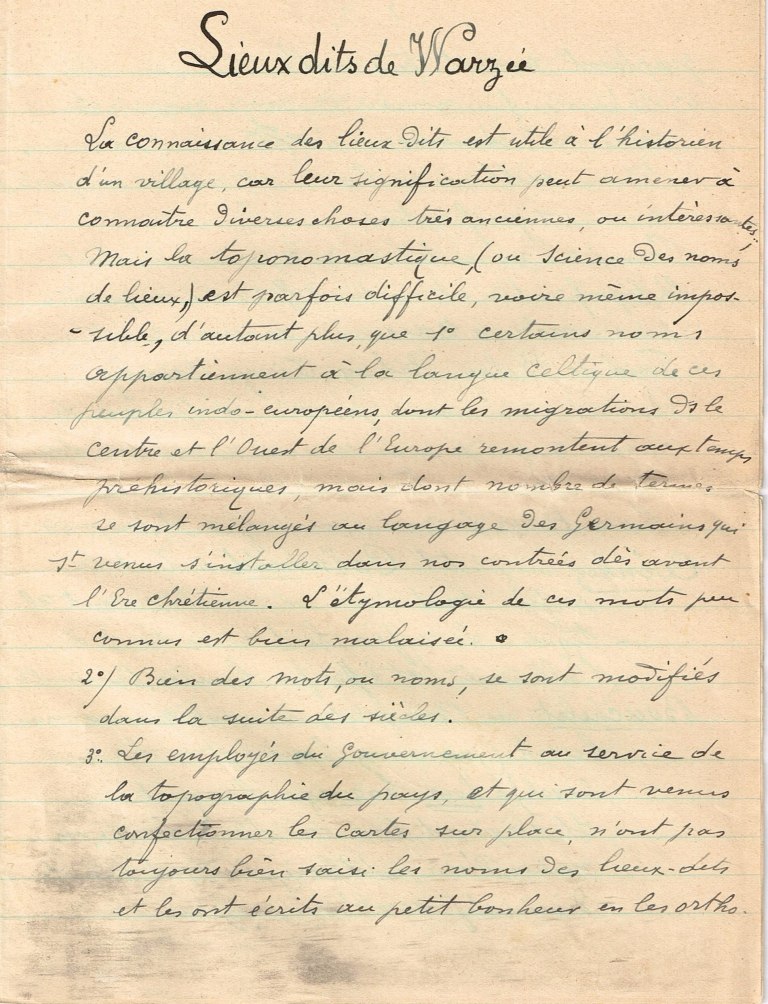 Lieux dits de Warzée
La connaissance des lieux-dits est utile à l'historien
d'un village, car leur signification peut amener à
connaître diverses choses très anciennes, ou intéressantes;
Mais la toponomastique, (ou science des noms
de lieux,) est parfois difficile, voire même impos-
-sible, d'autant plus, que 1° certains noms
appartiennent à la langue celtique de ces
peuples indo-européens, dont les migrations ds le
centre et l'Ouest de l'Europe remontent aux temps
préhistoriques, mais dont nombre de termes
se sont mélangés au langage des Germains qui
st venus s'installer dans nos contrées dès avant
l'Ere chrétienne. L'étymologie de ces mots peu
connus est bien malaisée.
2°/ Bien des mots, ou noms, se sont modifiés
dans la suite des siècles.
3° Les employés du Gouvernement au service de
la topographie du pays, et qui sont venus
confectionner les cartes sur place, n'ont pas
toujours bien saisi les noms des lieux-dits
et les ont écrits au petit bonheur en les ortho-